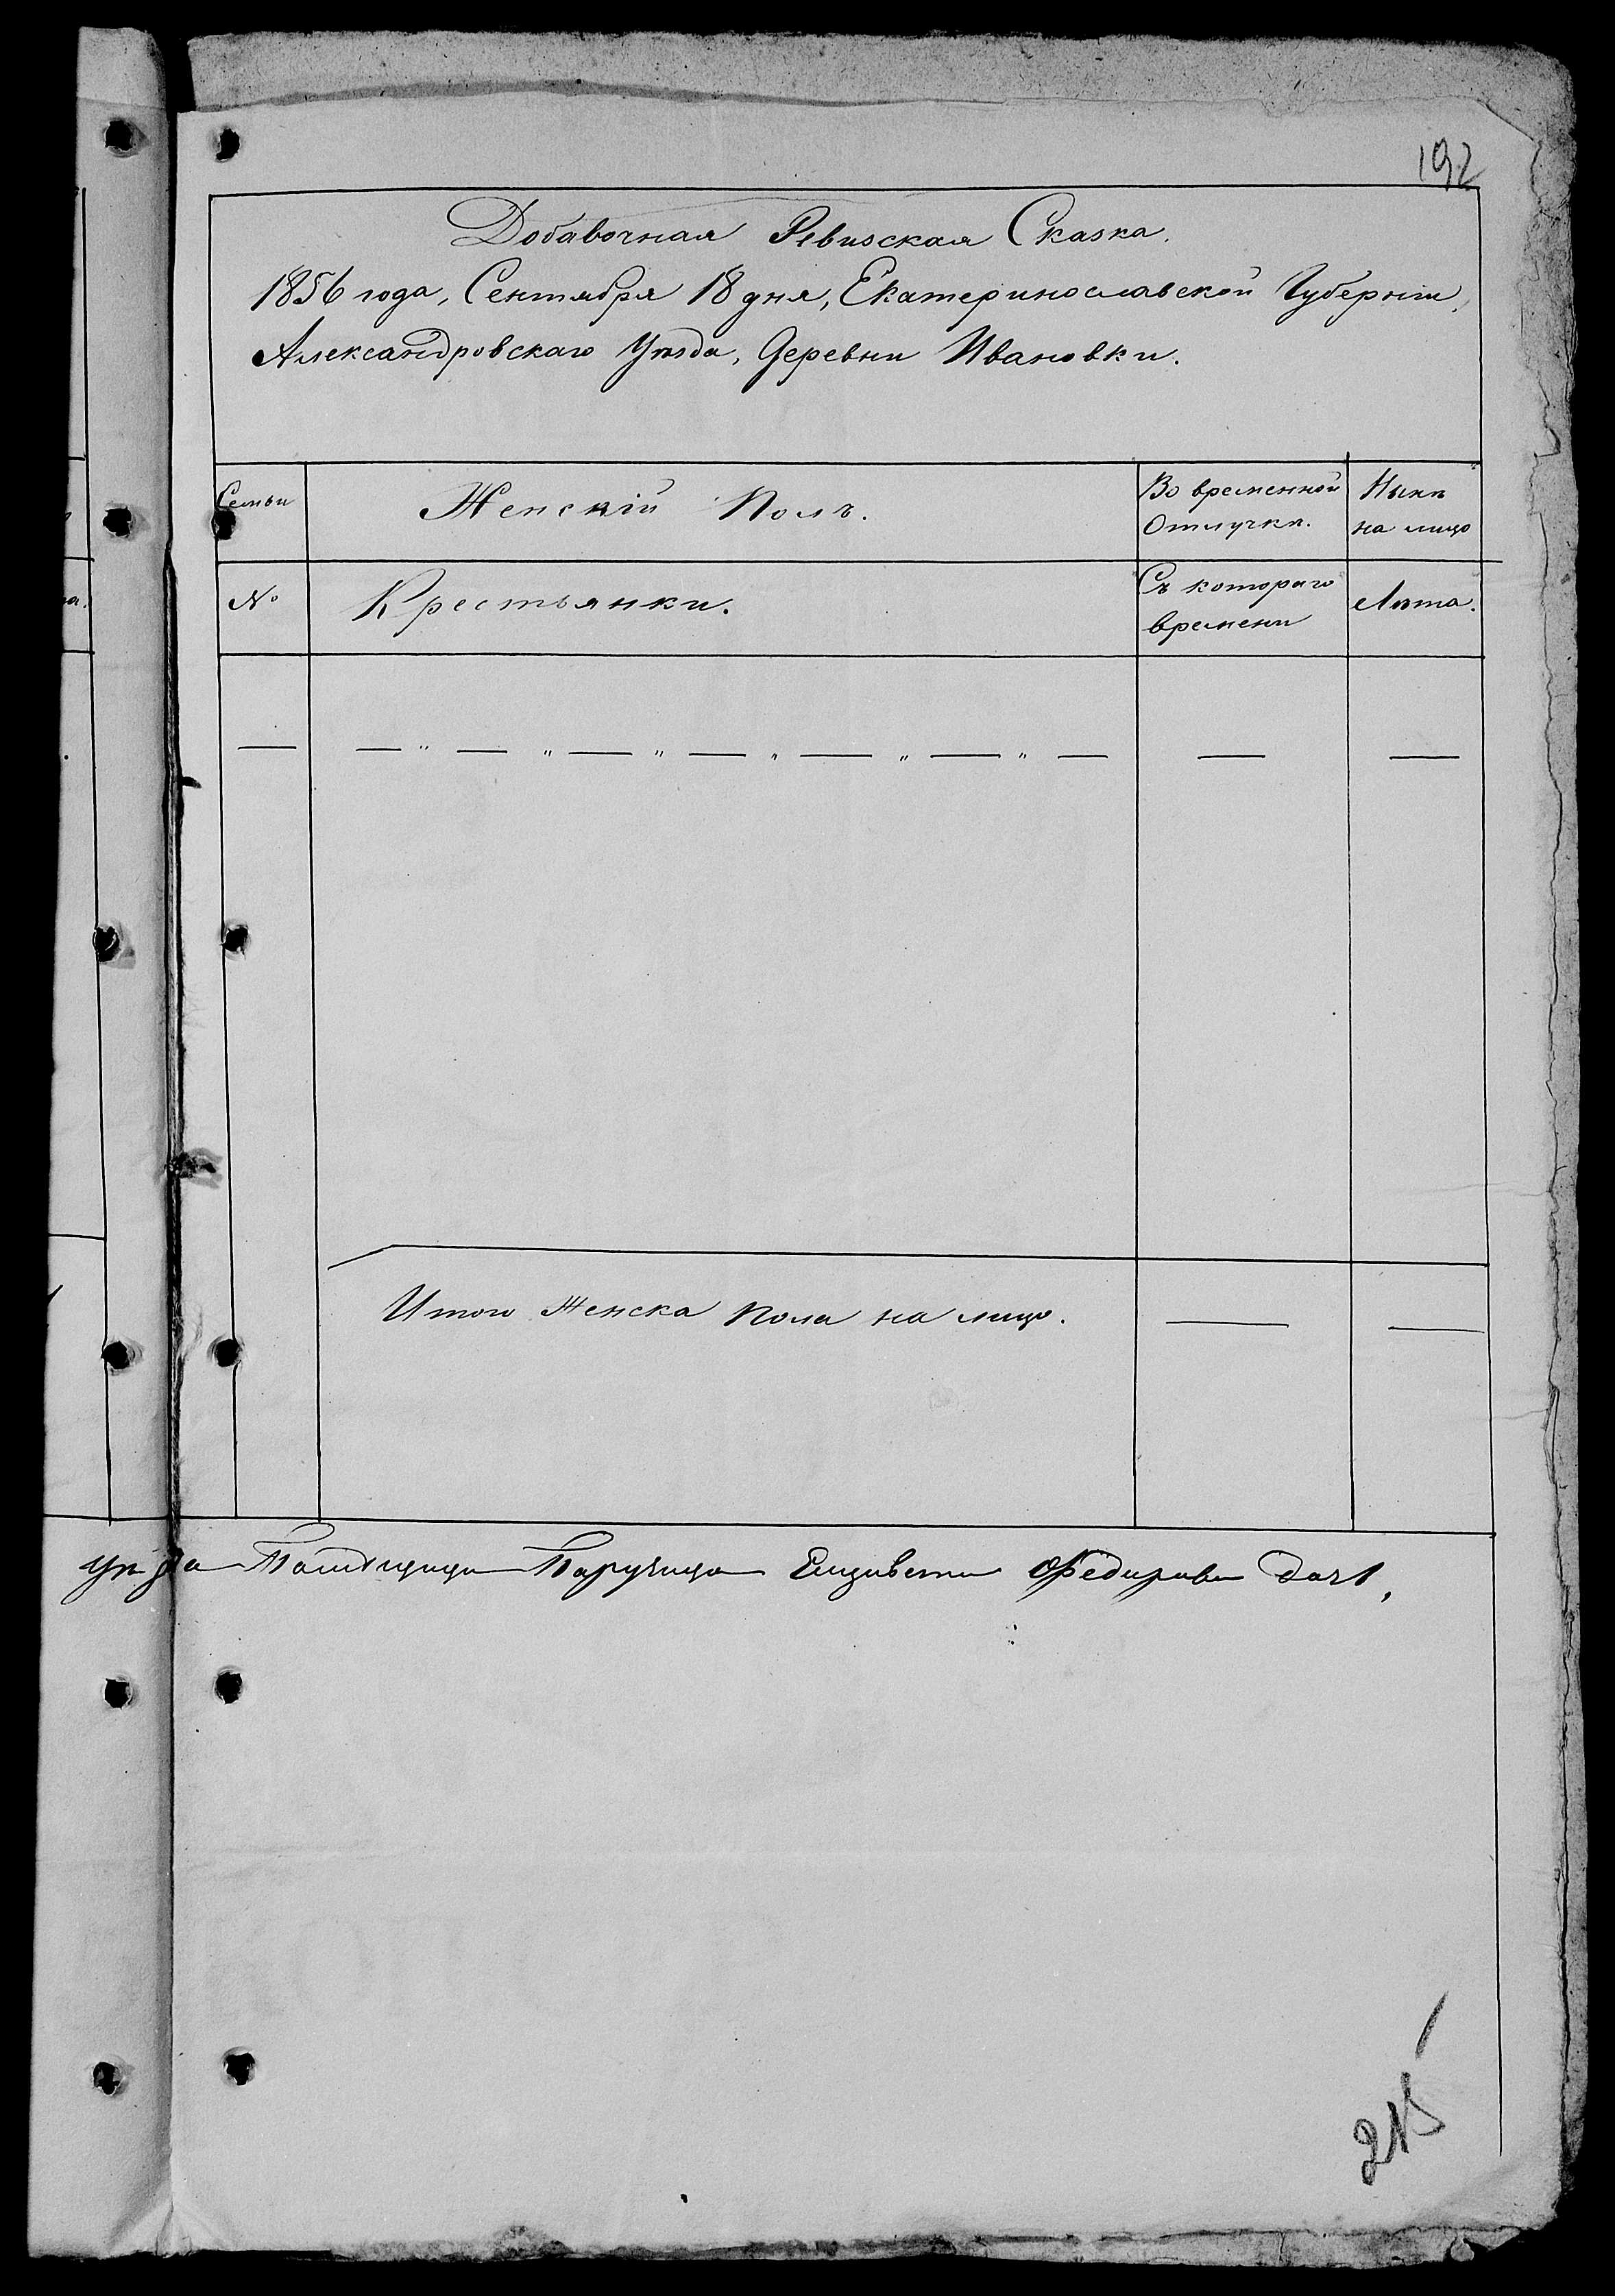 192
Добавочная Ревизская Сказка.
1856 года, Сентября 18 дня, Екатеринославской Губерніи,
Александровскаго Уѣзда, Деревни Ивановки.
Семьи
Женскій Полъ.
Во временной Отлучкѣ.
Нынѣ на лицо
№
Крестьянки.
Съ котораго времени
Лѣта.
— — " — " — " — " — " — " — — —
Итого Женска пола на лицо. — —
Помѣщица Паручица Елизавета Федирова дочь,
215